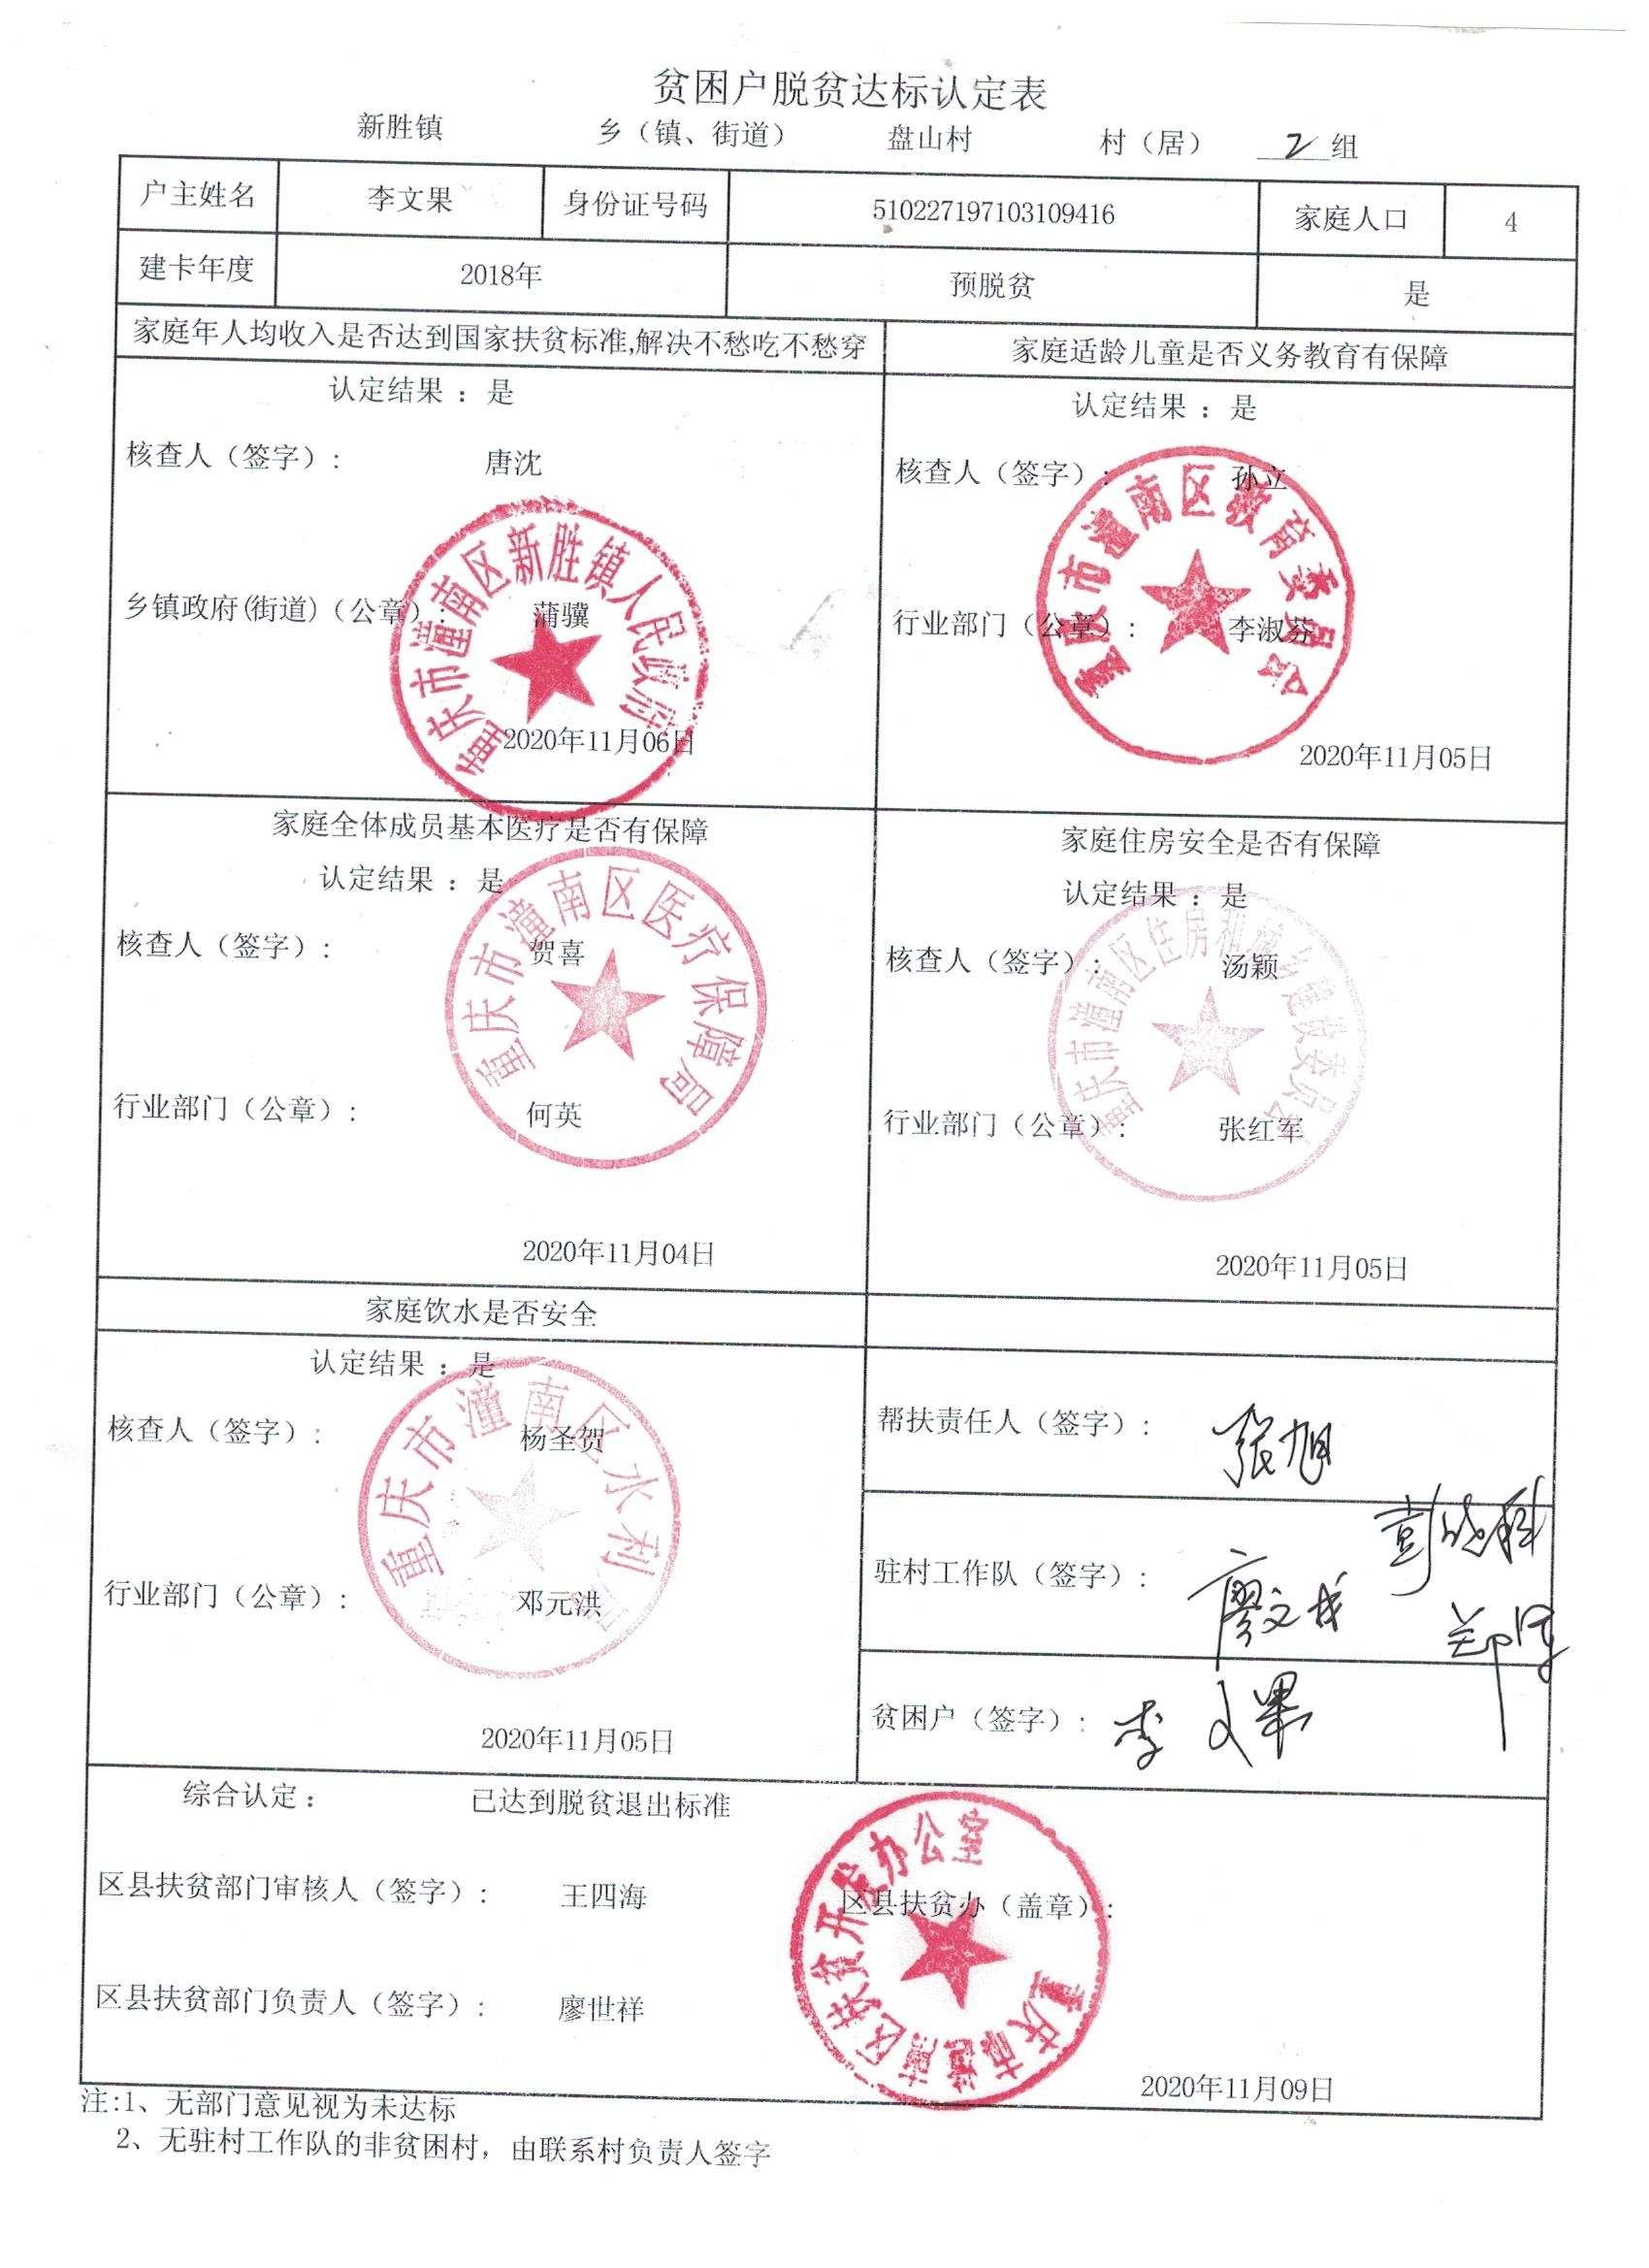 贫困户脱贫达标认定表
新胜镇 乡（镇、街道） 盘山村 村（居） 2 组
户主姓名 李文果 身份证号码 510227197103109416 家庭人口 4
建卡年度 2018年 预脱贫 是
家庭年人均收入是否达到国家扶贫标准,解决不愁吃不愁穿
认定结果 ：是
核查人（签字）: 唐沈
乡镇政府(街道)（公章）: 蒲骥
重庆市潼南区新胜镇人民政府
2020年11月06日
家庭适龄儿童是否义务教育有保障
认定结果 ：是
核查人（签字）: 孙立
行业部门（公章）: 李淑芬
重庆市潼南区教育委员会
2020年11月05日
家庭全体成员基本医疗是否有保障
认定结果 ：是
核查人（签字）: 贺喜
行业部门（公章）: 何英
重庆市潼南区医疗保障局
2020年11月04日
家庭住房安全是否有保障
认定结果 ：是
核查人（签字）: 汤颖
行业部门（公章）: 张红军
重庆市潼南区住房和城乡建设委员会
2020年11月05日
家庭饮水是否安全
认定结果 ：是
核查人（签字）: 杨圣贺
行业部门（公章）: 邓元洪
重庆市潼南区水利局
2020年11月05日
帮扶责任人（签字）: 张旭
驻村工作队（签字）: 廖文成
贫困户（签字）: 李文果
综合认定： 已达到脱贫退出标准
区县扶贫部门审核人（签字）: 王四海 区县扶贫办（盖章）:
区县扶贫部门负责人（签字）: 廖世祥
重庆市潼南区扶贫开发办公室
2020年11月09日
注:1、无部门意见视为未达标
2、无驻村工作队的非贫困村，由联系村负责人签字